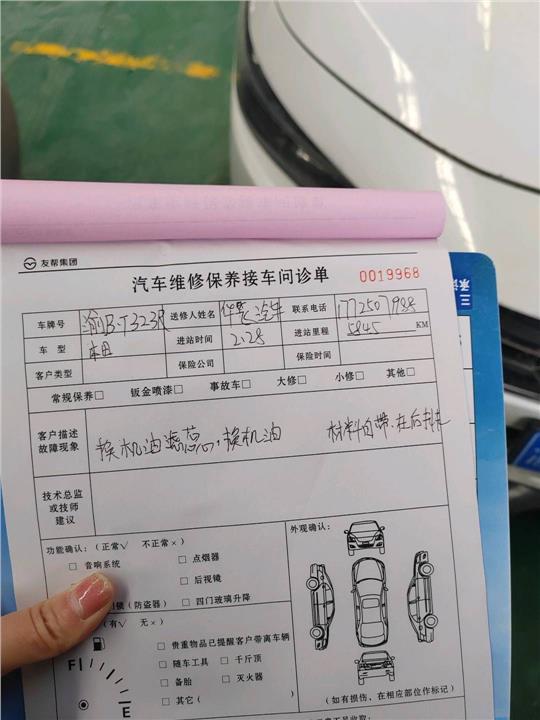 友帮集团
汽车维修保养接车问诊单 0019968
车牌号 渝B·J323R 送修人姓名 汽车 联系电话
车 型 本田 进站时间 2.28 进站里程 5845 KM
客户类型 保险公司 保险时间
常规保养□ 钣金喷漆□ 事故车□ 大修□ 小修□ 其他□
客户描述
故障现象
换机油滤芯，换机油 材料自带.在后排
技术总监
或技师
建议
功能确认：（正常√ 不正常×） 外观确认：
□ 音响系统 □ 点烟器
□ 后视镜
锁（防盗器） □ 四门玻璃升降
（有√ 无×）
□ 贵重物品已提醒客户带离车辆
□ 随车工具 □ 千斤顶
□ 备胎 □ 灭火器
□ 其它（ ）
F E
（如有损伤，在相应部位作标记）